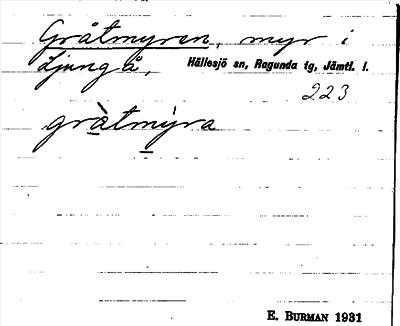 Gråtmyren, myr i
Ljungå, Hällesjö sn, Ragunda tg, Jämtl. l.
223
gràtmýra
E. BURMAN 1931